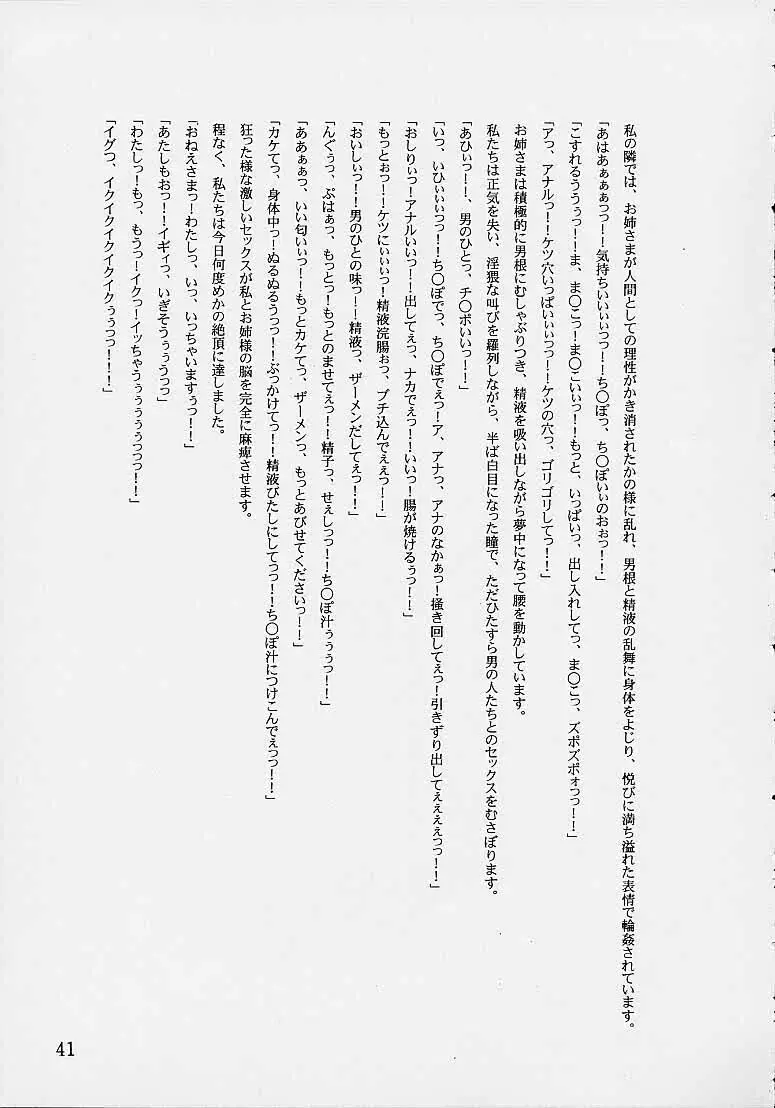 私の隣では、お姉さまが人間としての理性がかき消されたかの様に乱れ、男根と精液の乱舞に身体をよじり、悦びに満ち溢れた表情で輪姦されています。
「あはあぁぁぁっっ！！気持ちいいぃぃっっ！！ち〇ぽっ、ち〇ぽいぃのおぉっ！！」
「こすれるううぅっ！！ま、ま〇こっ！ま〇こいぃっ！！もっと、いっぱいっ、出し入れしてっ、ま〇こっ、ズポズポォっっ！！」
「アっ、アナルっ！！ケツ穴いっぱいぃぃっっ！！ケツの穴っ、ゴリゴリしてっ！！」
お姉さまは積極的に男根にむしゃぶりつき、精液を吸い出しながら夢中になって腰を動かしています。
私たちは正気を失い、淫猥な叫びを羅列しながら、半ば白目になった瞳で、ただひたすら男の人たちとのセックスをむさぼります。
「あひぃっー！、男のひとっ、チ〇ポいいっ！！」
「いっ、いひぃぃぃっっ！！ち〇ぽでっ、ち〇ぽでぇっー！ア、アナっ、アナのなかぁっ！掻き回してぇっ！引きずり出してぇぇぇぇっっ！！」
「おしりぃっ！アナルいいっ！！出してぇっ、ナカでぇっ！！いいっ！腸が焼けるぅっ！！」
「もっとぉっ！！ケツにぃぃぃっ！精液浣腸ぉっ、ブチ込んでぇぇっ！！」
「おいしいっ！！男のひとの味っ！！精液っ、ザーメンだしてぇっ！！」
「んぐぅっ、ぷはぁっ、もっとっ！もっとのませてえっ！！精子っ、せぇしっっ！！ち〇ぽ汁ぅぅぅっ！！」
「ああぁぁっ、いい匂いぃっ！！もっとカケてっ、ザーメンっ、もっとあびせてくださいっー！」
「カケてっ、身体中っ！ぬるぬるうっっ！！ぶっかけてっ！！精液びたしにしてっっ！！ち〇ぽ汁につけこんでえっっ！！」
狂った様な激しいセックスが私とお姉様の脳を完全に麻痺させます。
程なく、私たちは今日何度めかの絶頂に達しました。
「おねえさまっ！わたしっ、いっ、いっちゃいますぅっ！！」
「あたしもおっ！！イギィっ、いぎそうぅぅうっっ」
「わたしっ！もっ、もうっ！イクっ！イッちゃうぅぅぅぅぅっっっ！！」
「イグつ、イクイクイクイクイクぅぅっっ！！！」
41